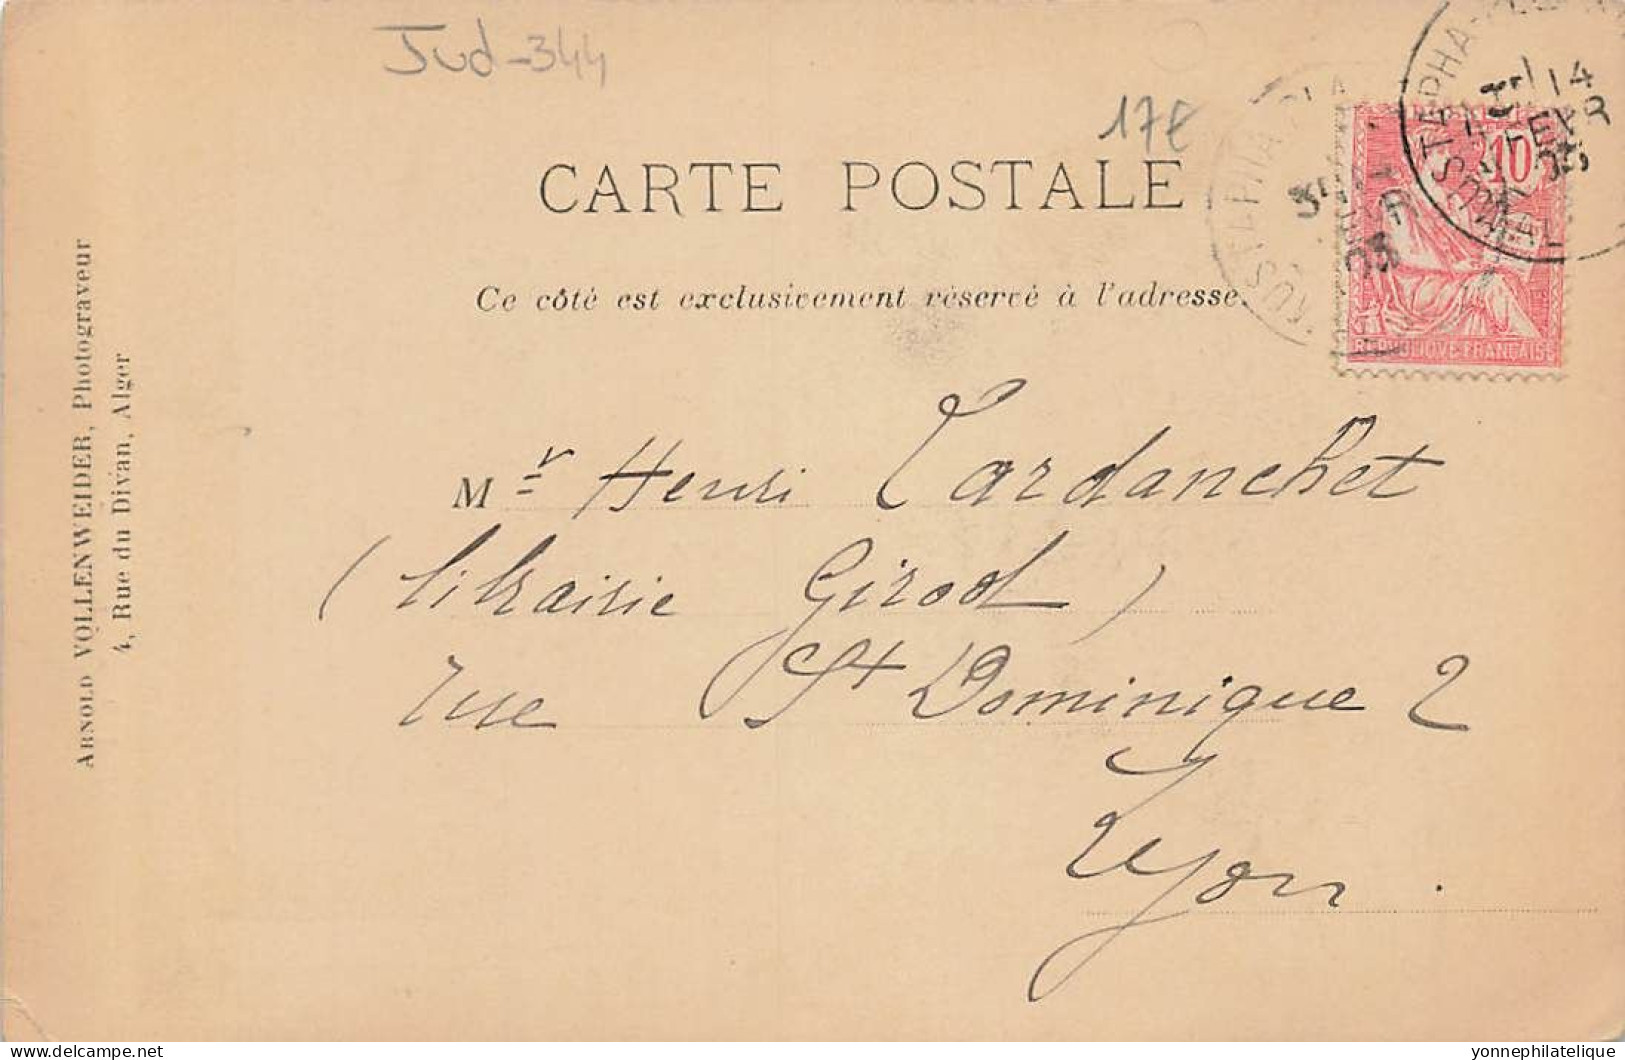 Jud-344
17€
CARTE POSTALE
Ce côté est exclusivement réservé à l'adresse.
14
FEVR
03
10
REPUBLIQUE FRANÇAISE
ARNOLD VOLLENWEIDER, Photograveur
4, Rue du Divan, Alger
Mr Henri Tardanchet
(librairie Girod)
rue St Dominique 2
Lyon.
yonnephilatelie.delcampe.net